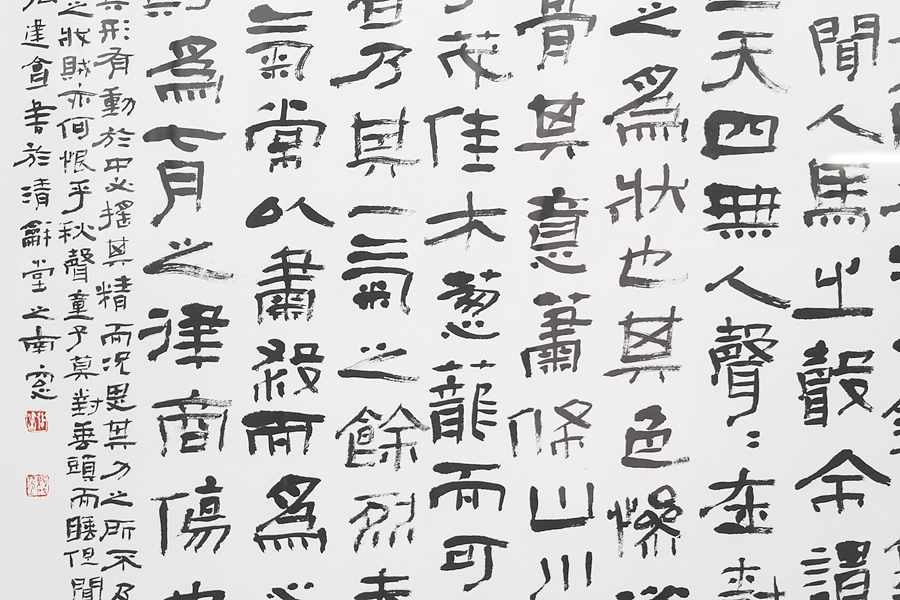 聞人馬之聲余謂
天四無人聲〻在樹
之爲狀也其色慘
骨其意蕭條山川
茂佳木葱蘢而可
者乃其一氣之餘烈夫
氣常以肅殺而爲心
爲七月之律商傷也
其形有動於中必搖其精而況思其力之所不及
之戕賊亦何恨乎秋聲童子莫對垂頭而睡但聞
達會書於清龢堂之南窓